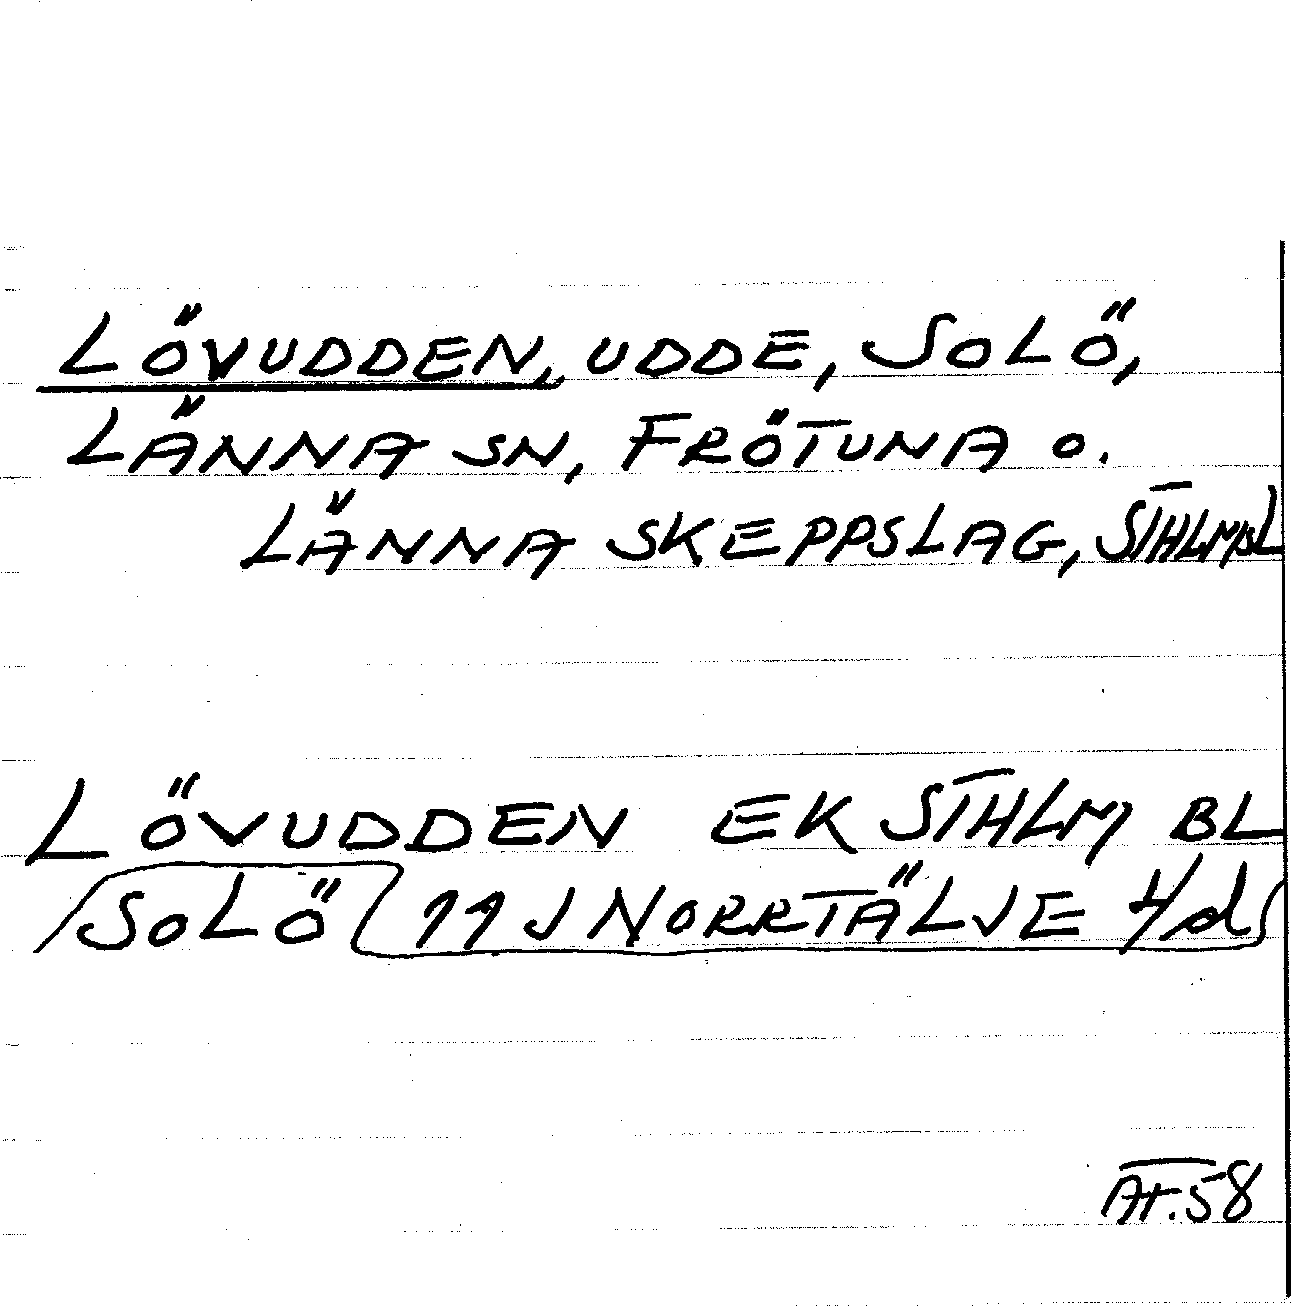 LÖVUDDEN, UDDE, SOLÖ,
LÄNNA SN, FRÖTUNA O.
LÄNNA SKEPPSLAG, STHLMSL
LÖVUDDEN EK STHLM BL
SOLÖ 11J NORRTÄLJE
AT.58